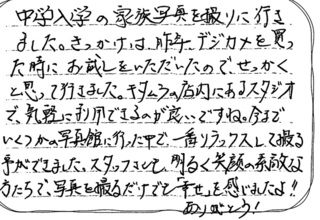 中学入学の家族写真を撮りに行き
ました。きっかけは、昨年、デジカメを買っ
た時にお試しをいただいたので、せっかく
と思って行きました。キタムラの店内にあるスタジオ
で、気軽に利用できるのが良いですね。今まで
いくつかの写真館に行った中で、一番リラックスして撮る
事ができました。スタッフさんも、明るく笑顔の素敵な
方たちで、写真を撮るだけでも「幸せ」を感じましたよ!!
ありがとう!